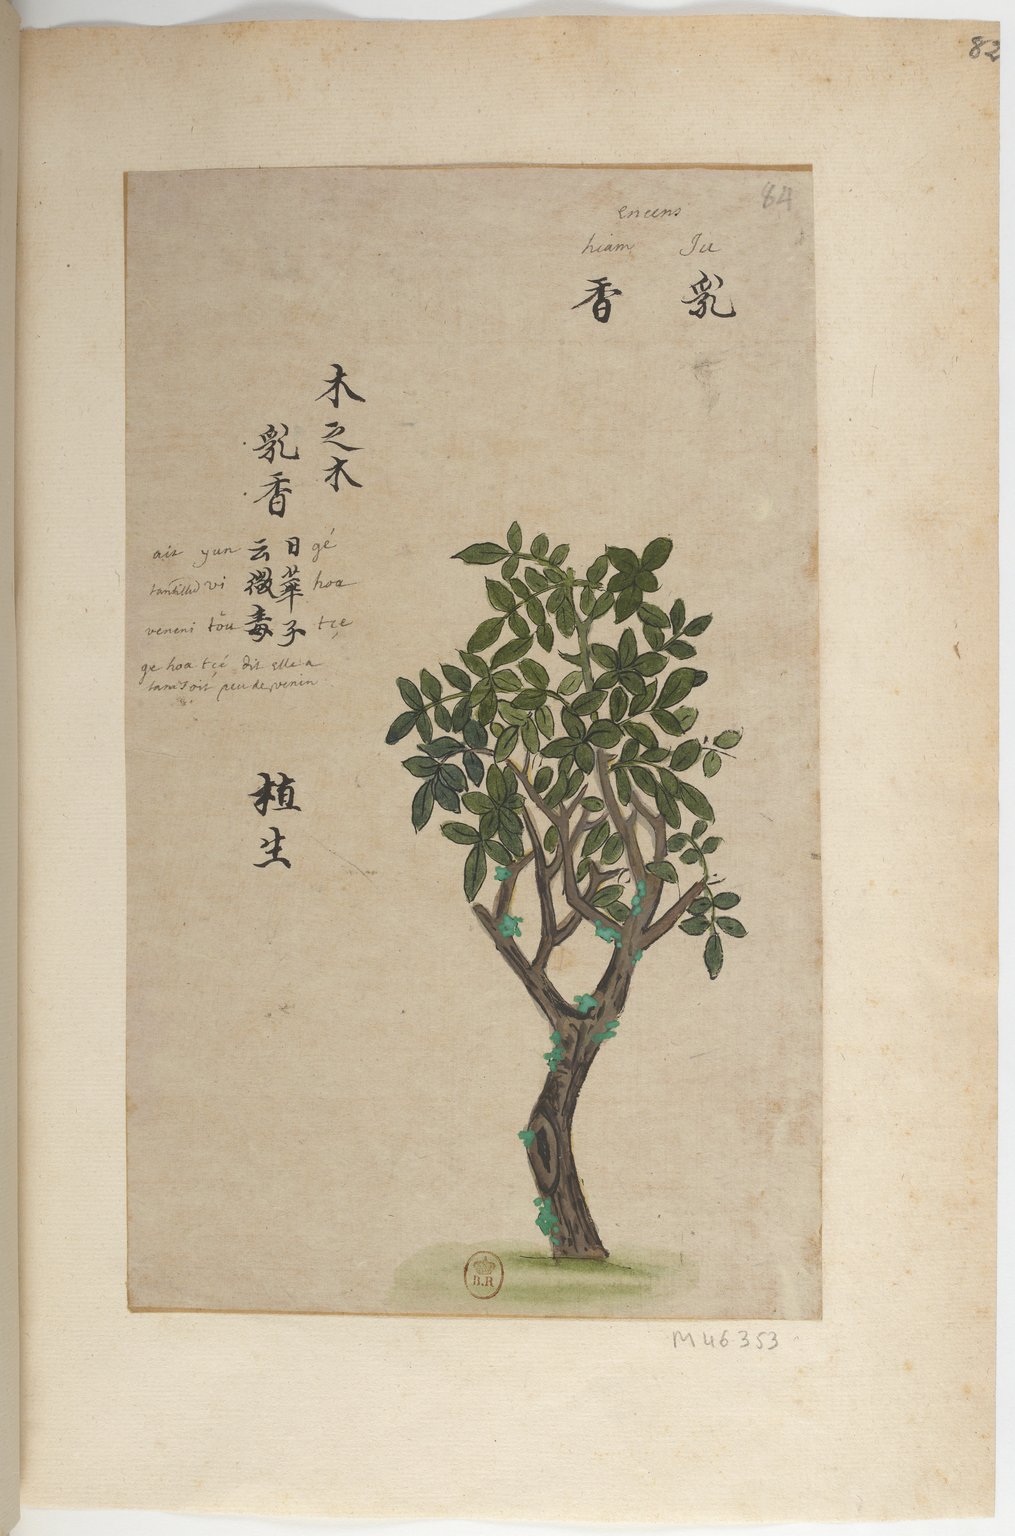 82
84
encens
hiam Ju
乳香
木之木
乳香
日華子
云微毒
gé
hoa
tçe
ait yun
tantillū vi
veneni tŏu
ge hoa tçé dit elle a
tant soit peu de venin
植生
B.R
M 46 353